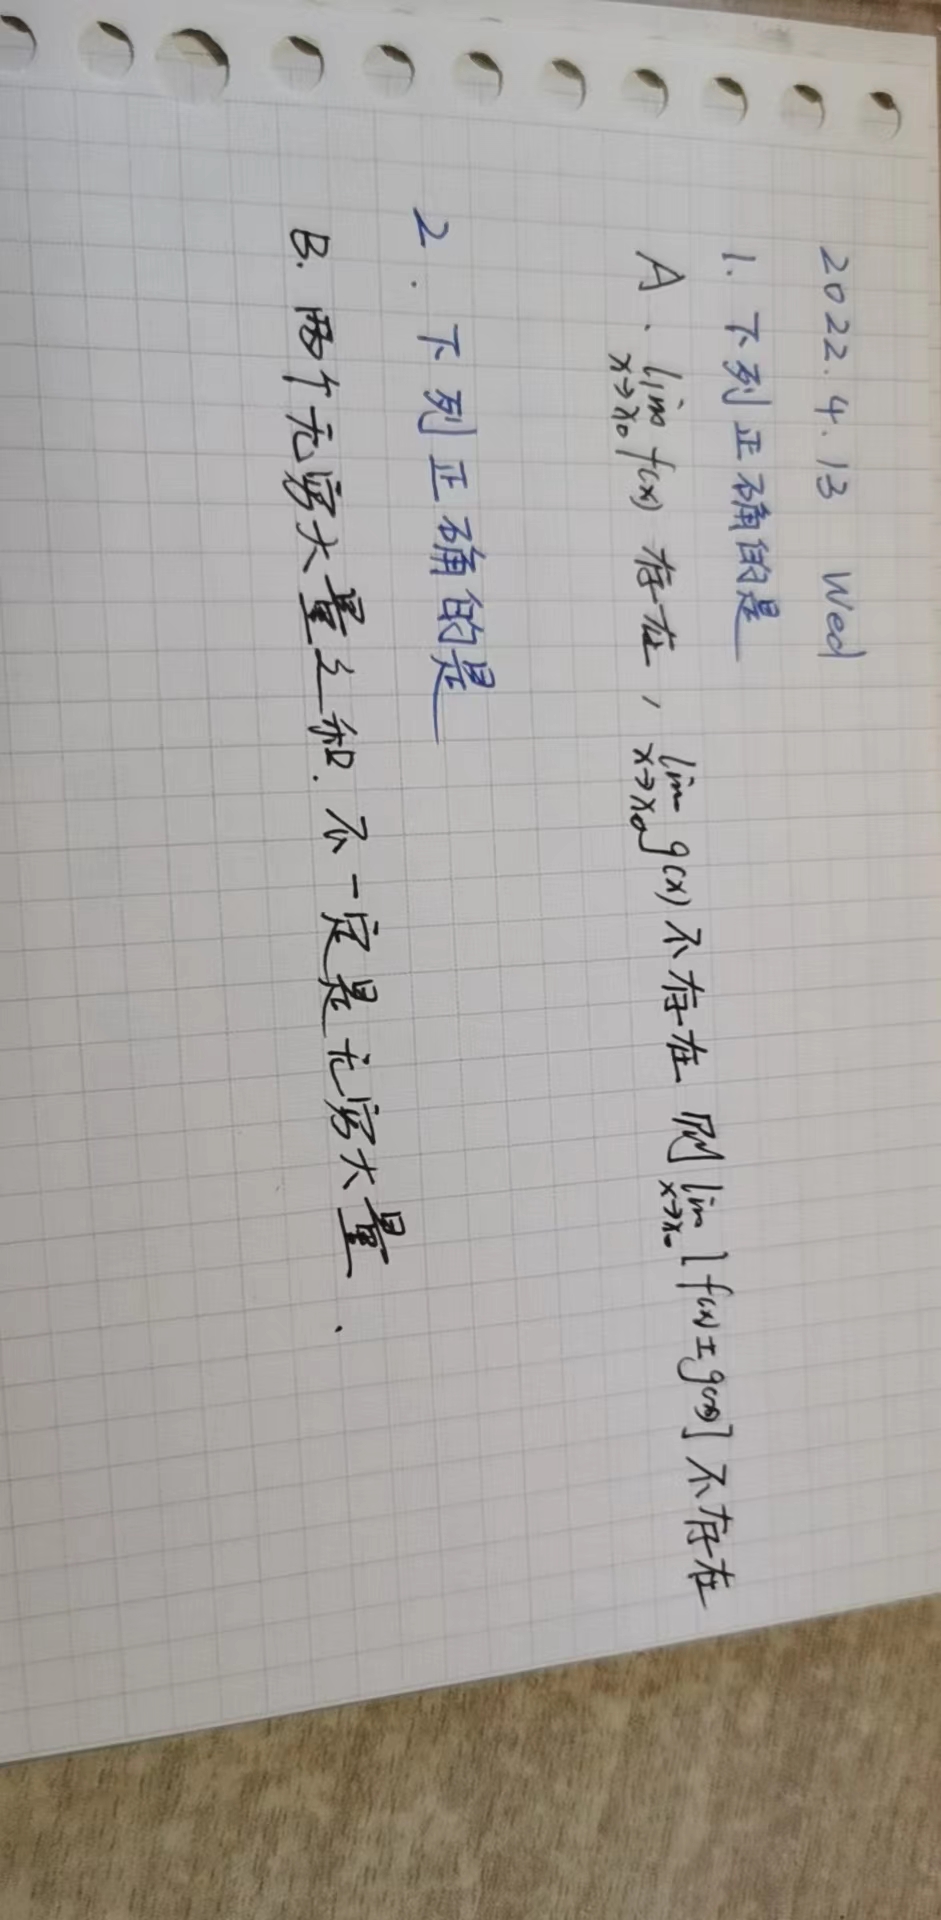 2022.4.13 Wed
1. 下列正确的是
A. lim x→x₀ f(x) 存在, lim x→x₀ g(x) 不存在 则 lim x→x₀ [f(x)±g(x)] 不存在
2. 下列正确的是
B. 两个无穷大量之积. 不一定是无穷大量.